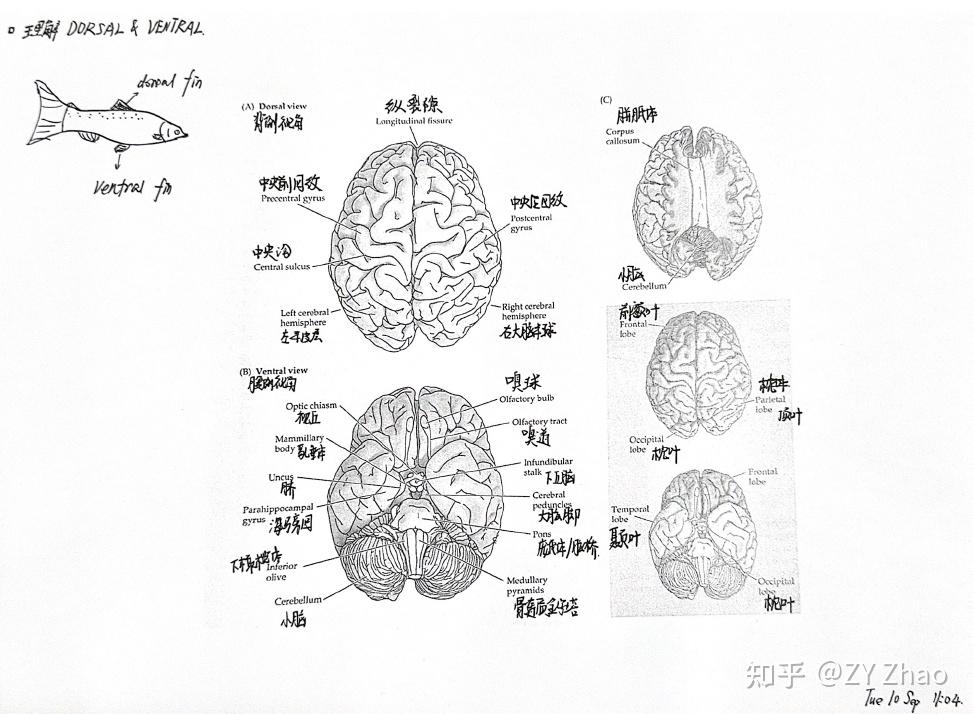 理解 DORSAL & VENTRAL.
dorsal fin
ventral fin
(A) Dorsal view
背侧视角
纵裂缝
Longitudinal fissure
中央前回
Precentral gyrus
中央后回
Postcentral
gyrus
中央沟
Central sulcus
Left cerebral
hemisphere
Right cerebral
hemisphere
右大脑半球
(B) Ventral view
腹侧视角
嗅球
Olfactory bulb
Optic chiasm
视丘
Olfactory tract
嗅道
Mammillary
body
乳垂体
Infundibular
stalk
下丘脑
Uncus
脐
Cerebral
peduncles
大脑脚
Parahippocampal
gyrus
海马旁回
Pons
脑桥
Inferior
olive
Medullary
pyramids
Cerebellum
小脑
(C)
胼胝体
Corpus
callosum
小脑
Cerebellum
前额叶
Frontal
lobe
Parietal
lobe
顶叶
Occipital
lobe
枕叶
Frontal
lobe
Temporal
lobe
颞叶
Occipital
lobe
枕叶
知乎 @ZY Zhao
Tue 10 Sep 11:04.